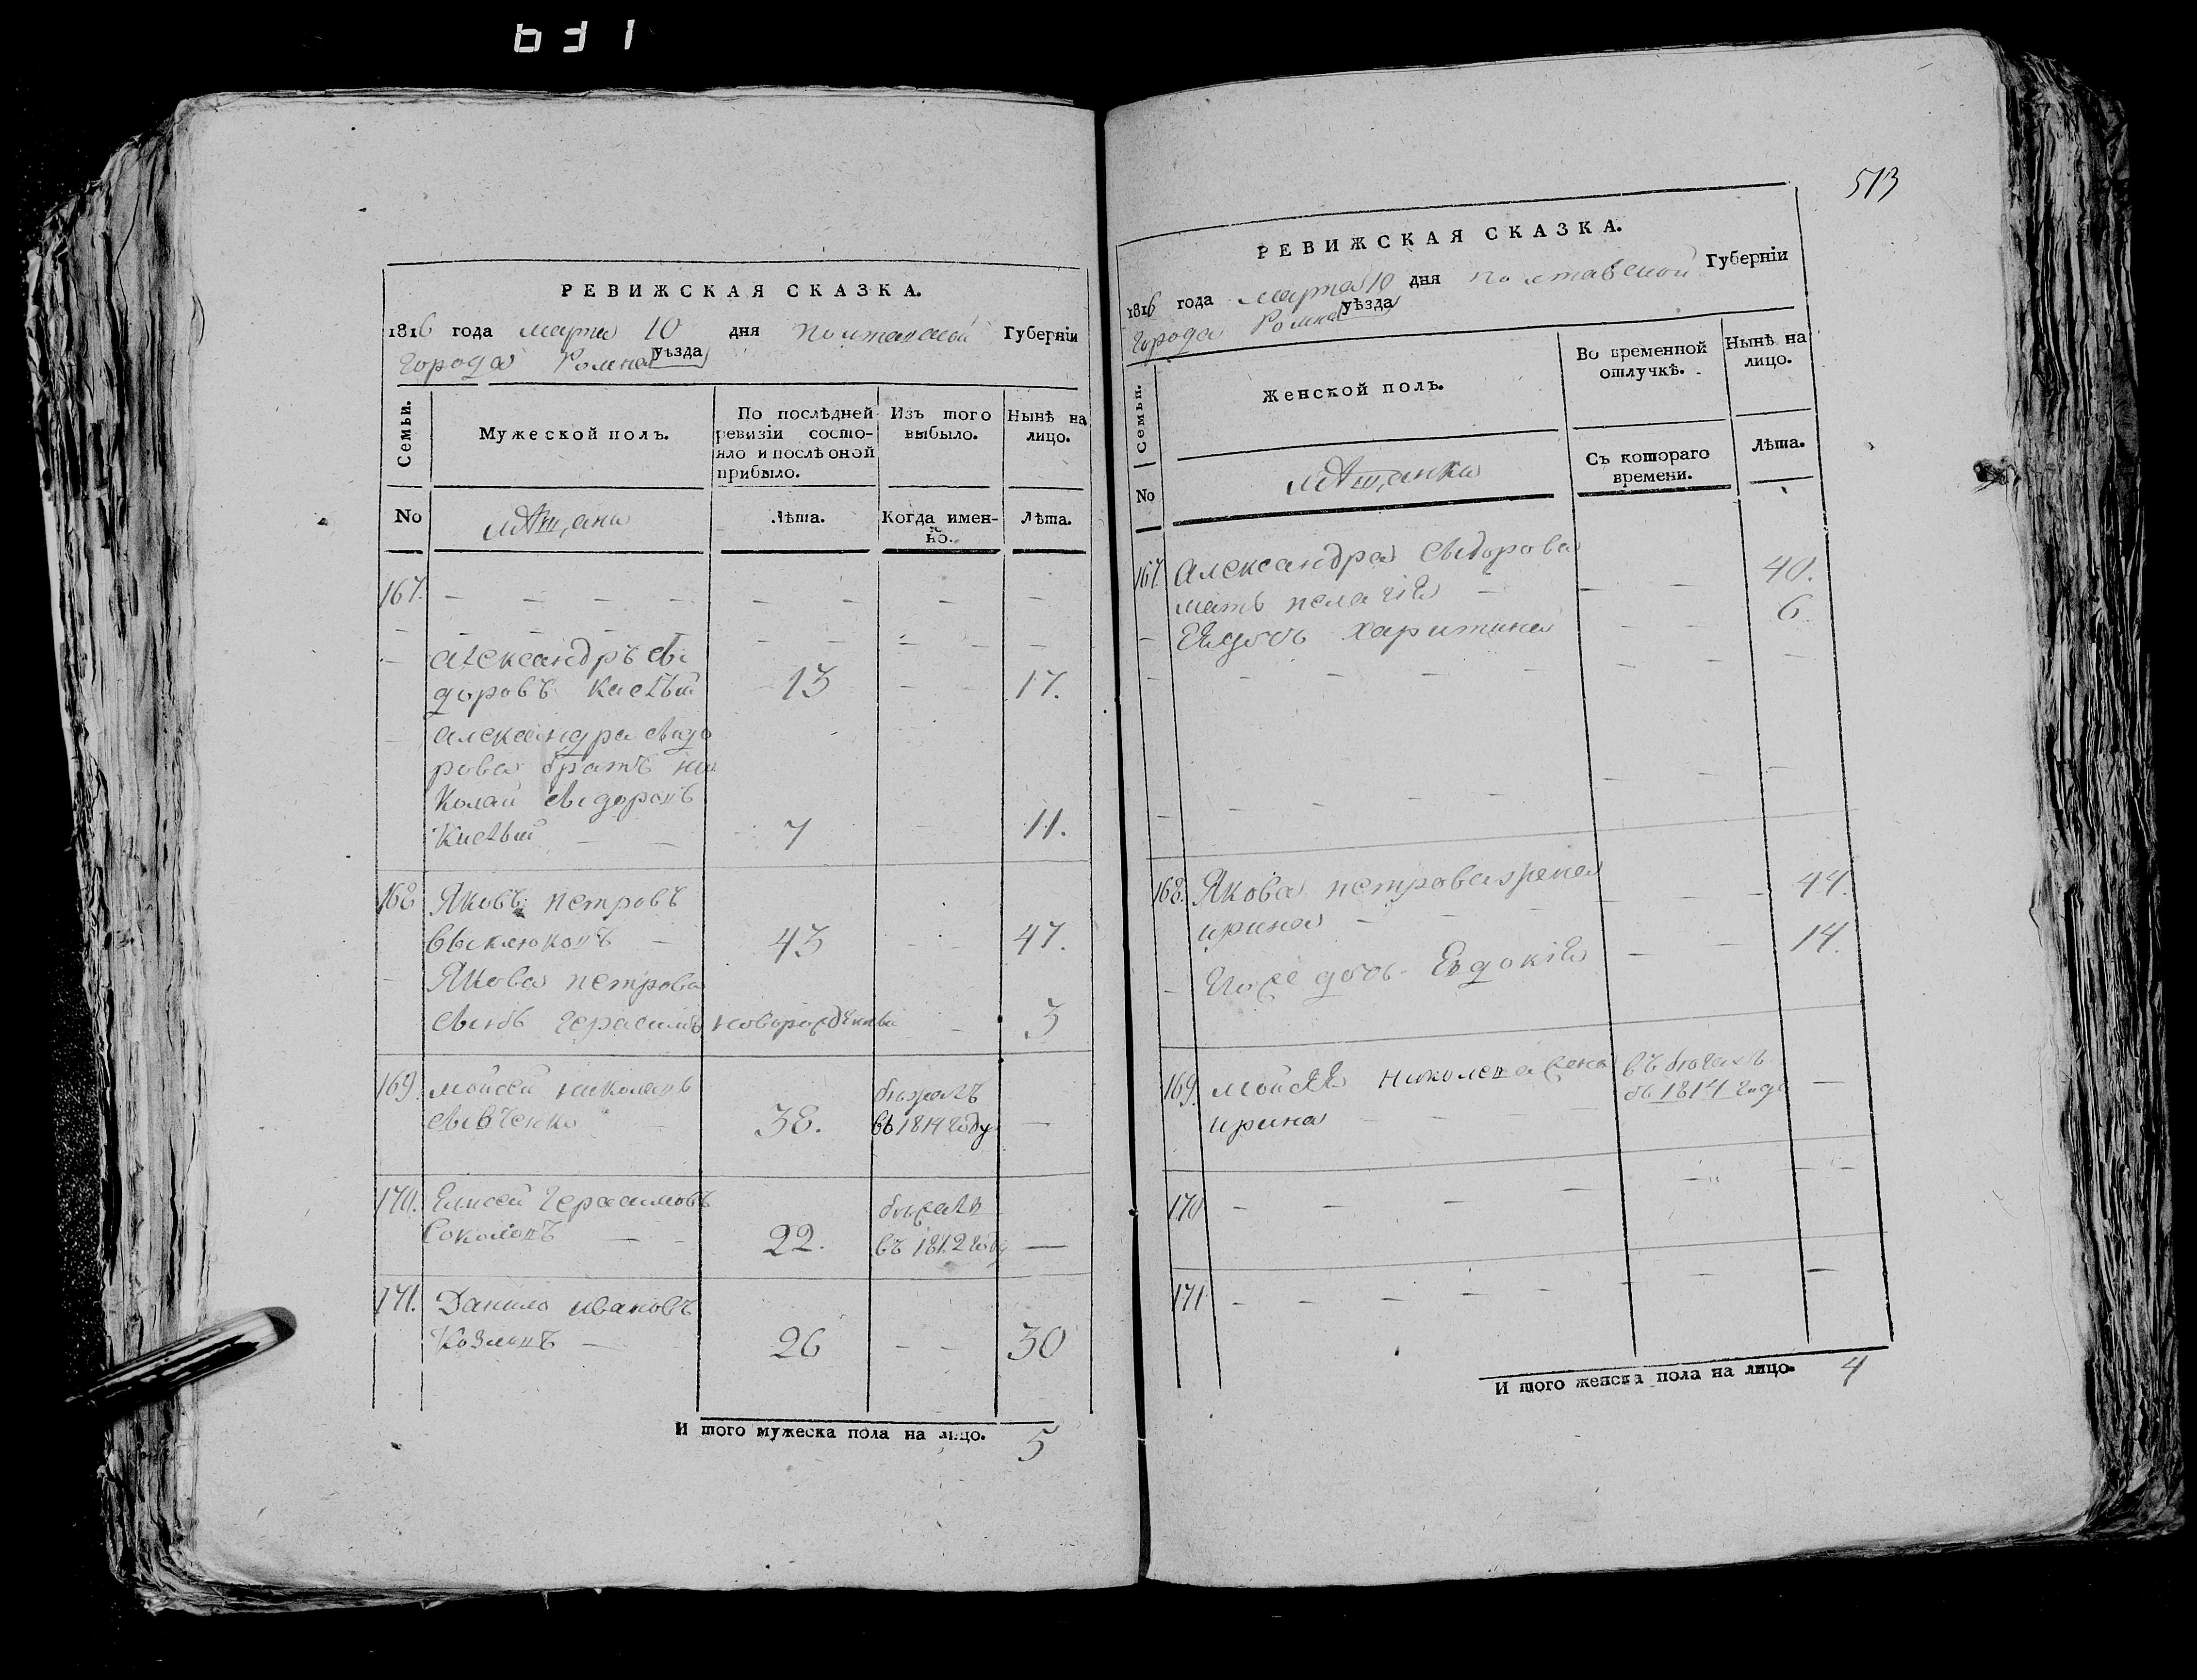 631
РЕВИЖСКАЯ СКАЗКА.
1816 года марта 10 дня Полтавской Губерніи
города Ромна уѣзда
Семьи.
Мужеской полъ.
По послѣдней ревизіи состо-
яло и послѣ оной
прибыло.
Изъ того
выбыло.
Нынѣ на
лицо.
No
мѣщане
Лѣта.
Когда имен-
но.
Лѣта.
167.
александръ сѣи
доровъ 13 17.
александра сѣидо
рова братъ ни
колай сѣидоровъ
7 11.
168 Яковъ петровъ
43 47.
Якова петрова
сынъ герасимъ новорожденны 3
169 мойсей николаевъ бѣжалъ
38. въ 1814 году —
170. Елисей герасимовъ бѣжалъ
Соколовъ 22. въ 1812 году —
171. Данило ивановъ
Козловъ 26 30
И того мужеска пола на лицо. 5
513
РЕВИЖСКАЯ СКАЗКА.
1816 года марта 10 дня полтавской Губерніи
города Ромна уѣзда
Семьи.
Женской полъ.
Во временной
отлучкѣ.
Нынѣ на
лицо.
No
мѣщанки
Съ котораго
времени.
Лѣта.
167. александра сѣидорова
мать пелагія 40.
дочь харитина 6.
168. Якова петрова жена
ирина 44.
Его же дочь Евдокія 14.
169. мойсея николаева жена въ бегахъ
ирина 1814 года —
170
171
И того женска пола на лицо. 4